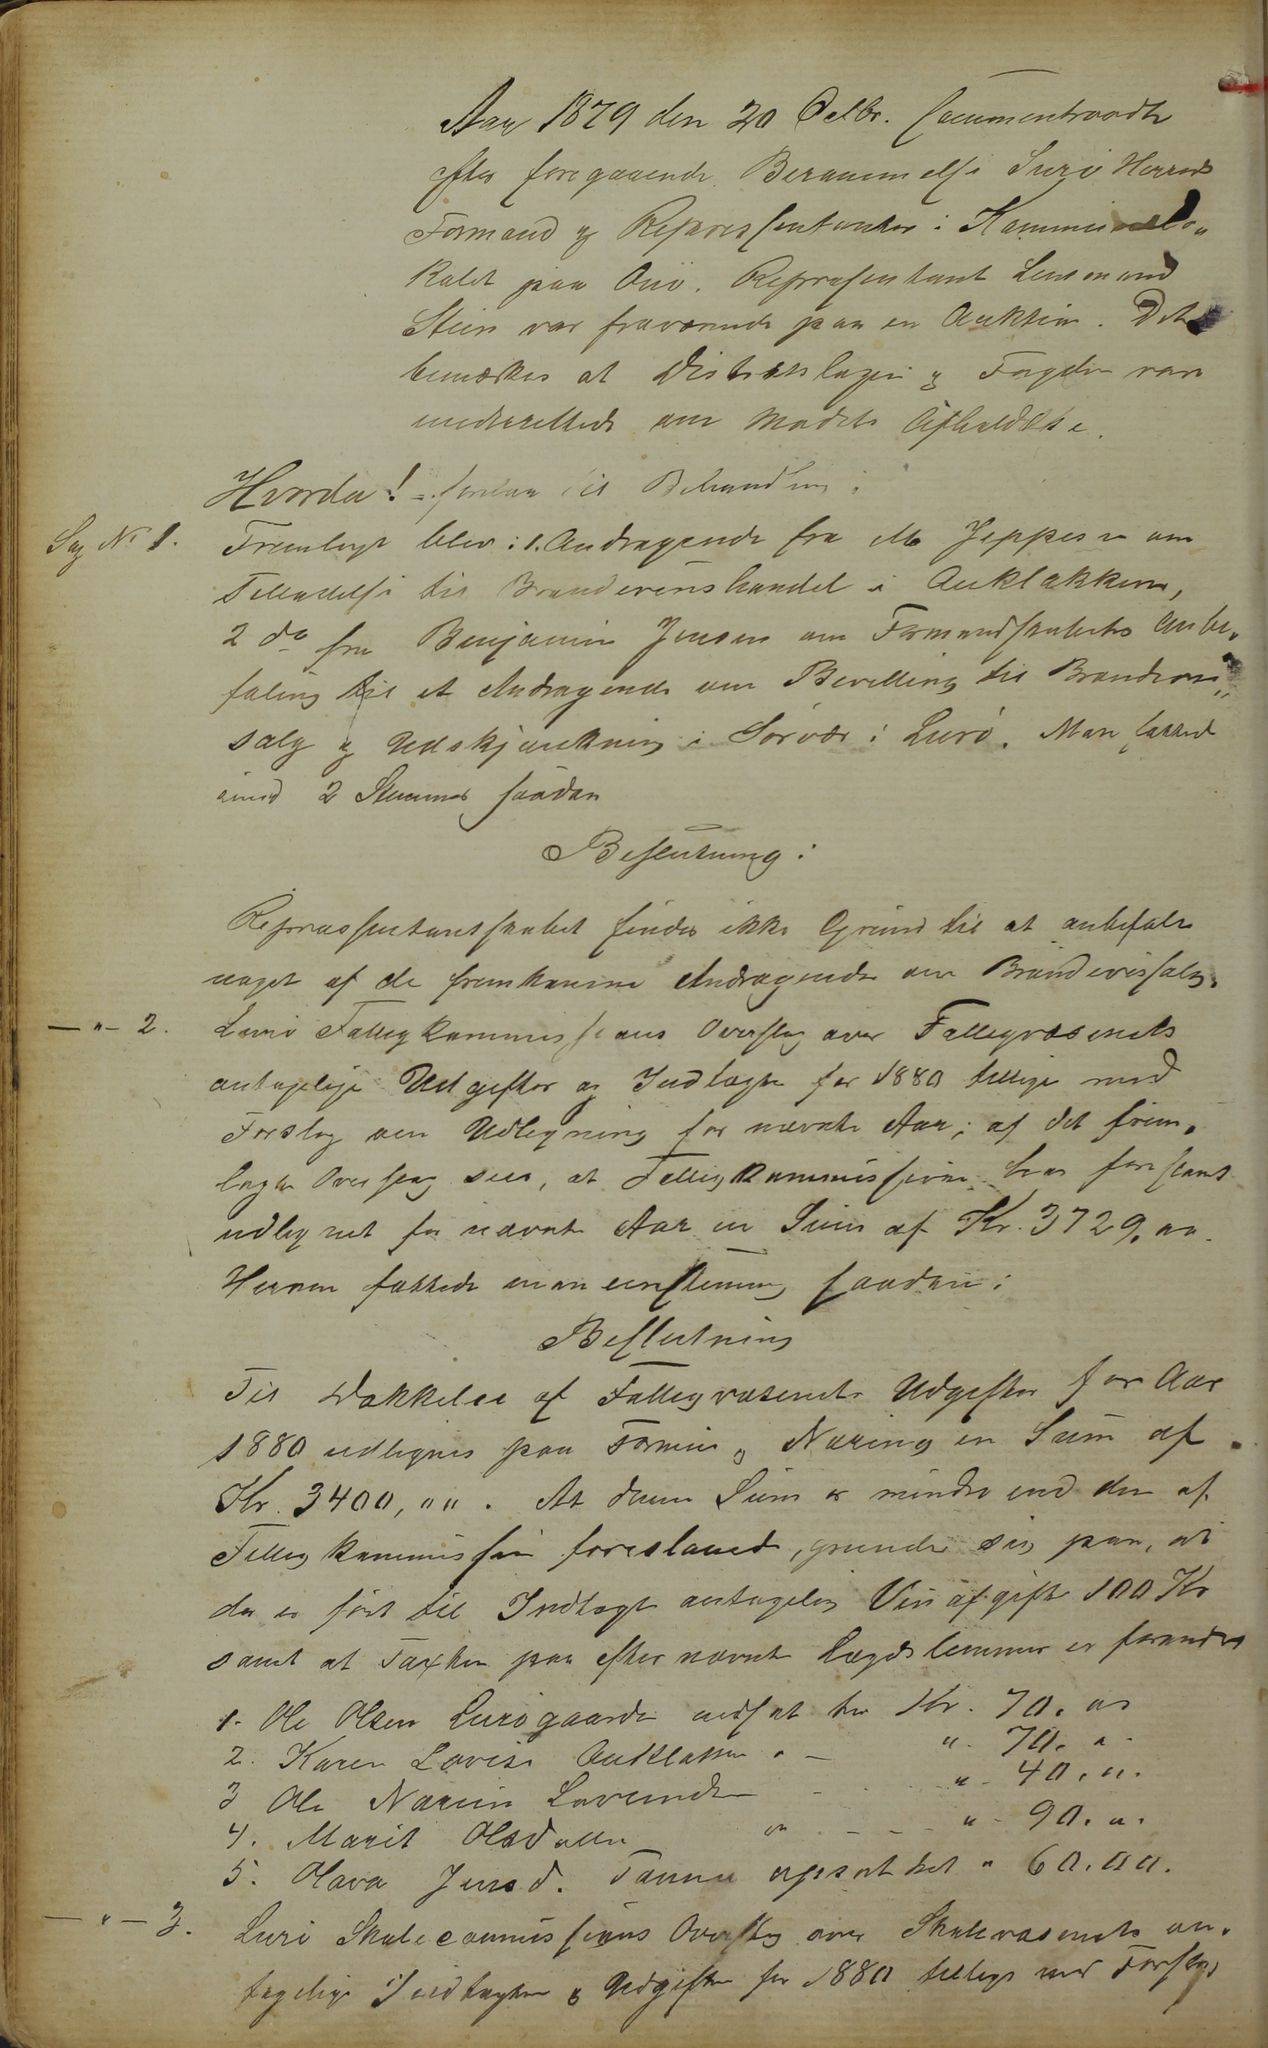 Aar 1879 den 20 Octbr. sammentraadte
efter foregaaende Berammelse Lurö Herreds
Formænd og Repræsentanter i Kommunelo„
kalet paa Onö. Repræsentant Lensmand
Stein var fraværende paa en Auktion. Det
bemærkes at Distriktslægen og Fogden vare
underrettede om Mødets Afholdelse.
Hvorda! foretaes til Behandling:
Sag № 1. Fremlagt blev: 1. Andragende fra Jeppesen om
Tilladelse til Brændevinshandel i Auklakken,
2 do fra Benjamin Jensen om Formandskabets Anbe„
faling til et Andragende om Bevilling til Brændevins„
salg og Udskjænkning i Sörvær i Lurö. Man fattede
imod 2 Stemmer saadan
Beslutning:
Repræsentantskabet finder ikke Grund til at anbefale
noget af de fremkomne Andragender om Brændevinssalg.
— „ — 2. Lurö Fattigkommissions Overslag over Fattigvæsenets
antagelige Udgifter og Indtægter for 1880 tillige med
Forslag om Udligning for nævnte Aar; af det frem„
lagte Overslag sees, at Fattigkommissionen har foreslaaet
udlignet for nævnte Aar en Sum af Kr. 3729,00.
Herom fattede man eenstemmig saadan:
Beslutning
Til Dækkelse af Fattigvæsenets Udgifter for Aar
1880 udlignes paa Formue og Næring en Sum af
Kr. 3400, „„. At denne Sum er mindre end den af
Fattigkommissionen foreslaaede, grunder sig paa, at
der er fört til Indtægt antagelig Vinafgift 100 Kr
samt at Taxten paa efternævnte Lægdslemmer er forandret
1. Ole Olsen Lurögaarden nedsat til Kr. 70. „„
2. Karen Lovise Auklakken „ — „ 70. „
3 Ole Lovunden - „ 40. „.
4. Marit Olsdatter „ - - - „ 90. „.
5. Olava Jensd. Tonnes opsat til „ 60.00.
— „ — 3. Lurö Skolecommissions Overslag over Skolevæsenets an„
tagelige Indtægter og Udgifter for 1880 tillige med Forslag